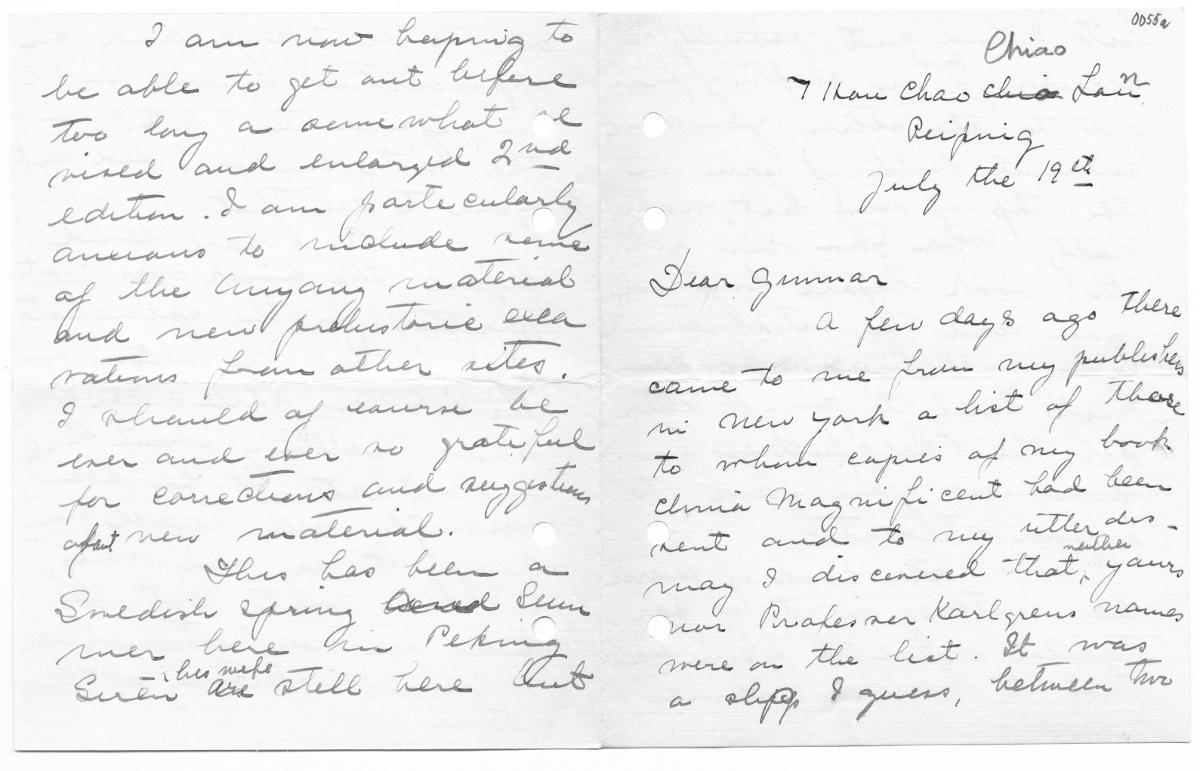 0055a
Chiao
7 Hou Chao chia Lan
Peiping
July the 19th
Dear Gunnar
A few days ago there
came to me from my publishers
in New York a list of those
to whom copies of my book
China Magnificent had been
sent and to my utter dis-
may I discovered that, neither yours
nor Professor Karlgrens names
were on the list. It was
a slip, I guess, between two
I am now hoping to
be able to get out before
too long a somewhat re
vised and enlarged 2nd
edition. I am particularly
anxious to include some
of the Anyang material
and new prehistoric exca
vations from other sites.
I should of course be
ever and ever so grateful
for corrections and suggestions
about new material.
This has been a
Swedish spring and Sum
mer here in Peking
Sirén & his wife are still here but